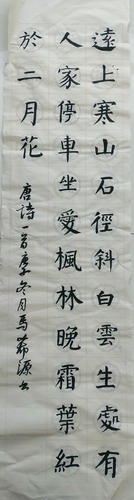 遠上寒山石徑斜白雲生處有
人家停車坐愛楓林晚霜葉紅
於二月花
唐詩一首庚子冬月馬希源书